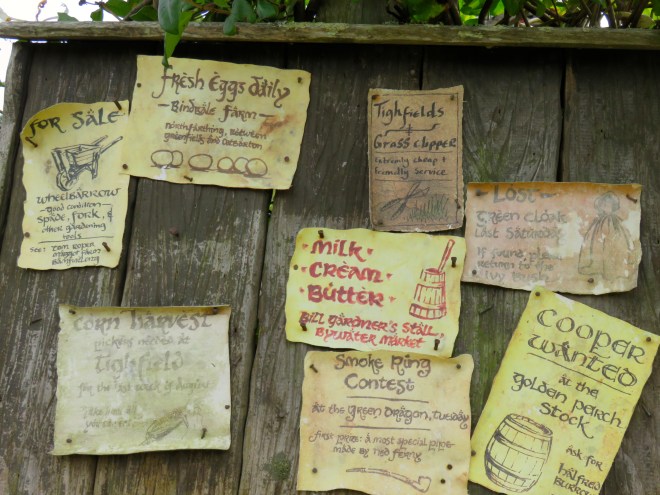 For Sale
Wheelbarrow
Good condition
Spade, Fork, &
other gardening
tools
See: Tom Roper
Fresh Eggs daily
Bindbale Farm
Northfarthing, between
Greenfields and Oatbarton
Tighfields
&
Grass Clipper
Extremely cheap &
friendly service
Lost
Green Cloak
Last Saturday
If found, please
return to the
Ivy Bush
Milk
Cream
Butter
Bill Gardner's Stall,
Bywater Market
Corn Harvest
picking needed at
Tighfield
for the
Smoke Ring
Contest
At the Green Dragon, Tuesday
First prize: a most special pipe-
made by Ned Ferny
Cooper
Wanted
at the
Golden Perch
Stock
Ask for
Halfred